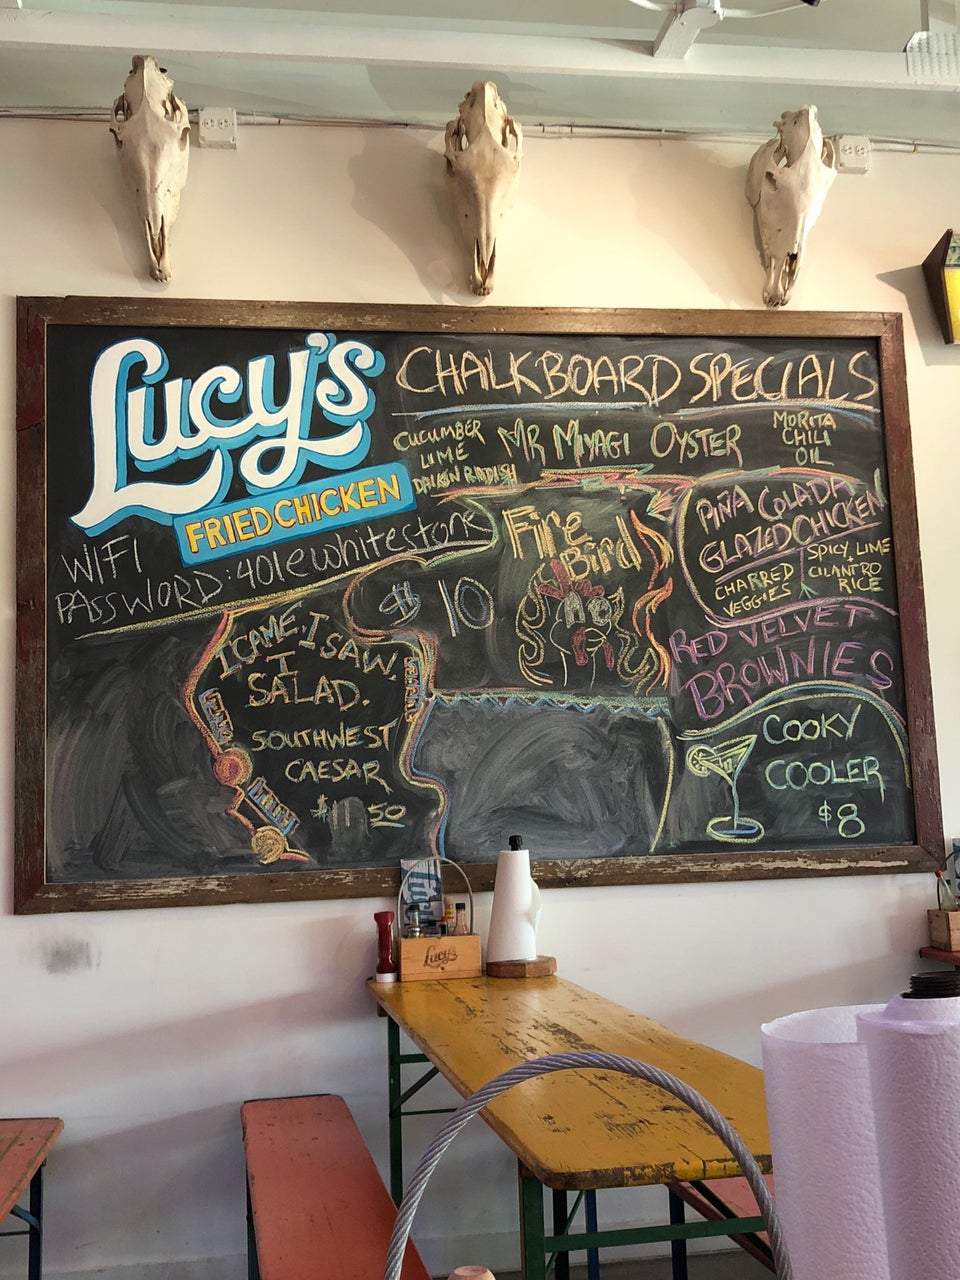 Lucy's
FRIED CHICKEN
CHALKBOARD SPECIALS
CUCUMBER
LIME
DAIKON RADISH
MR MIYAGI OYSTER
MORITA
CHILI
OIL
WIFI
PASSWORD: 401ewhitestone
$10
Fire
Bird
PIÑA COLADA
GLAZED CHICKEN
CHARRED
VEGGIES
SPICY, LIME
CILANTRO
RICE
I CAME, I SAW,
I
SALAD.
SOUTHWEST
CAESAR
$11 50
RED VELVET
BROWNIES
COOKY
COOLER
$8
Lucy's